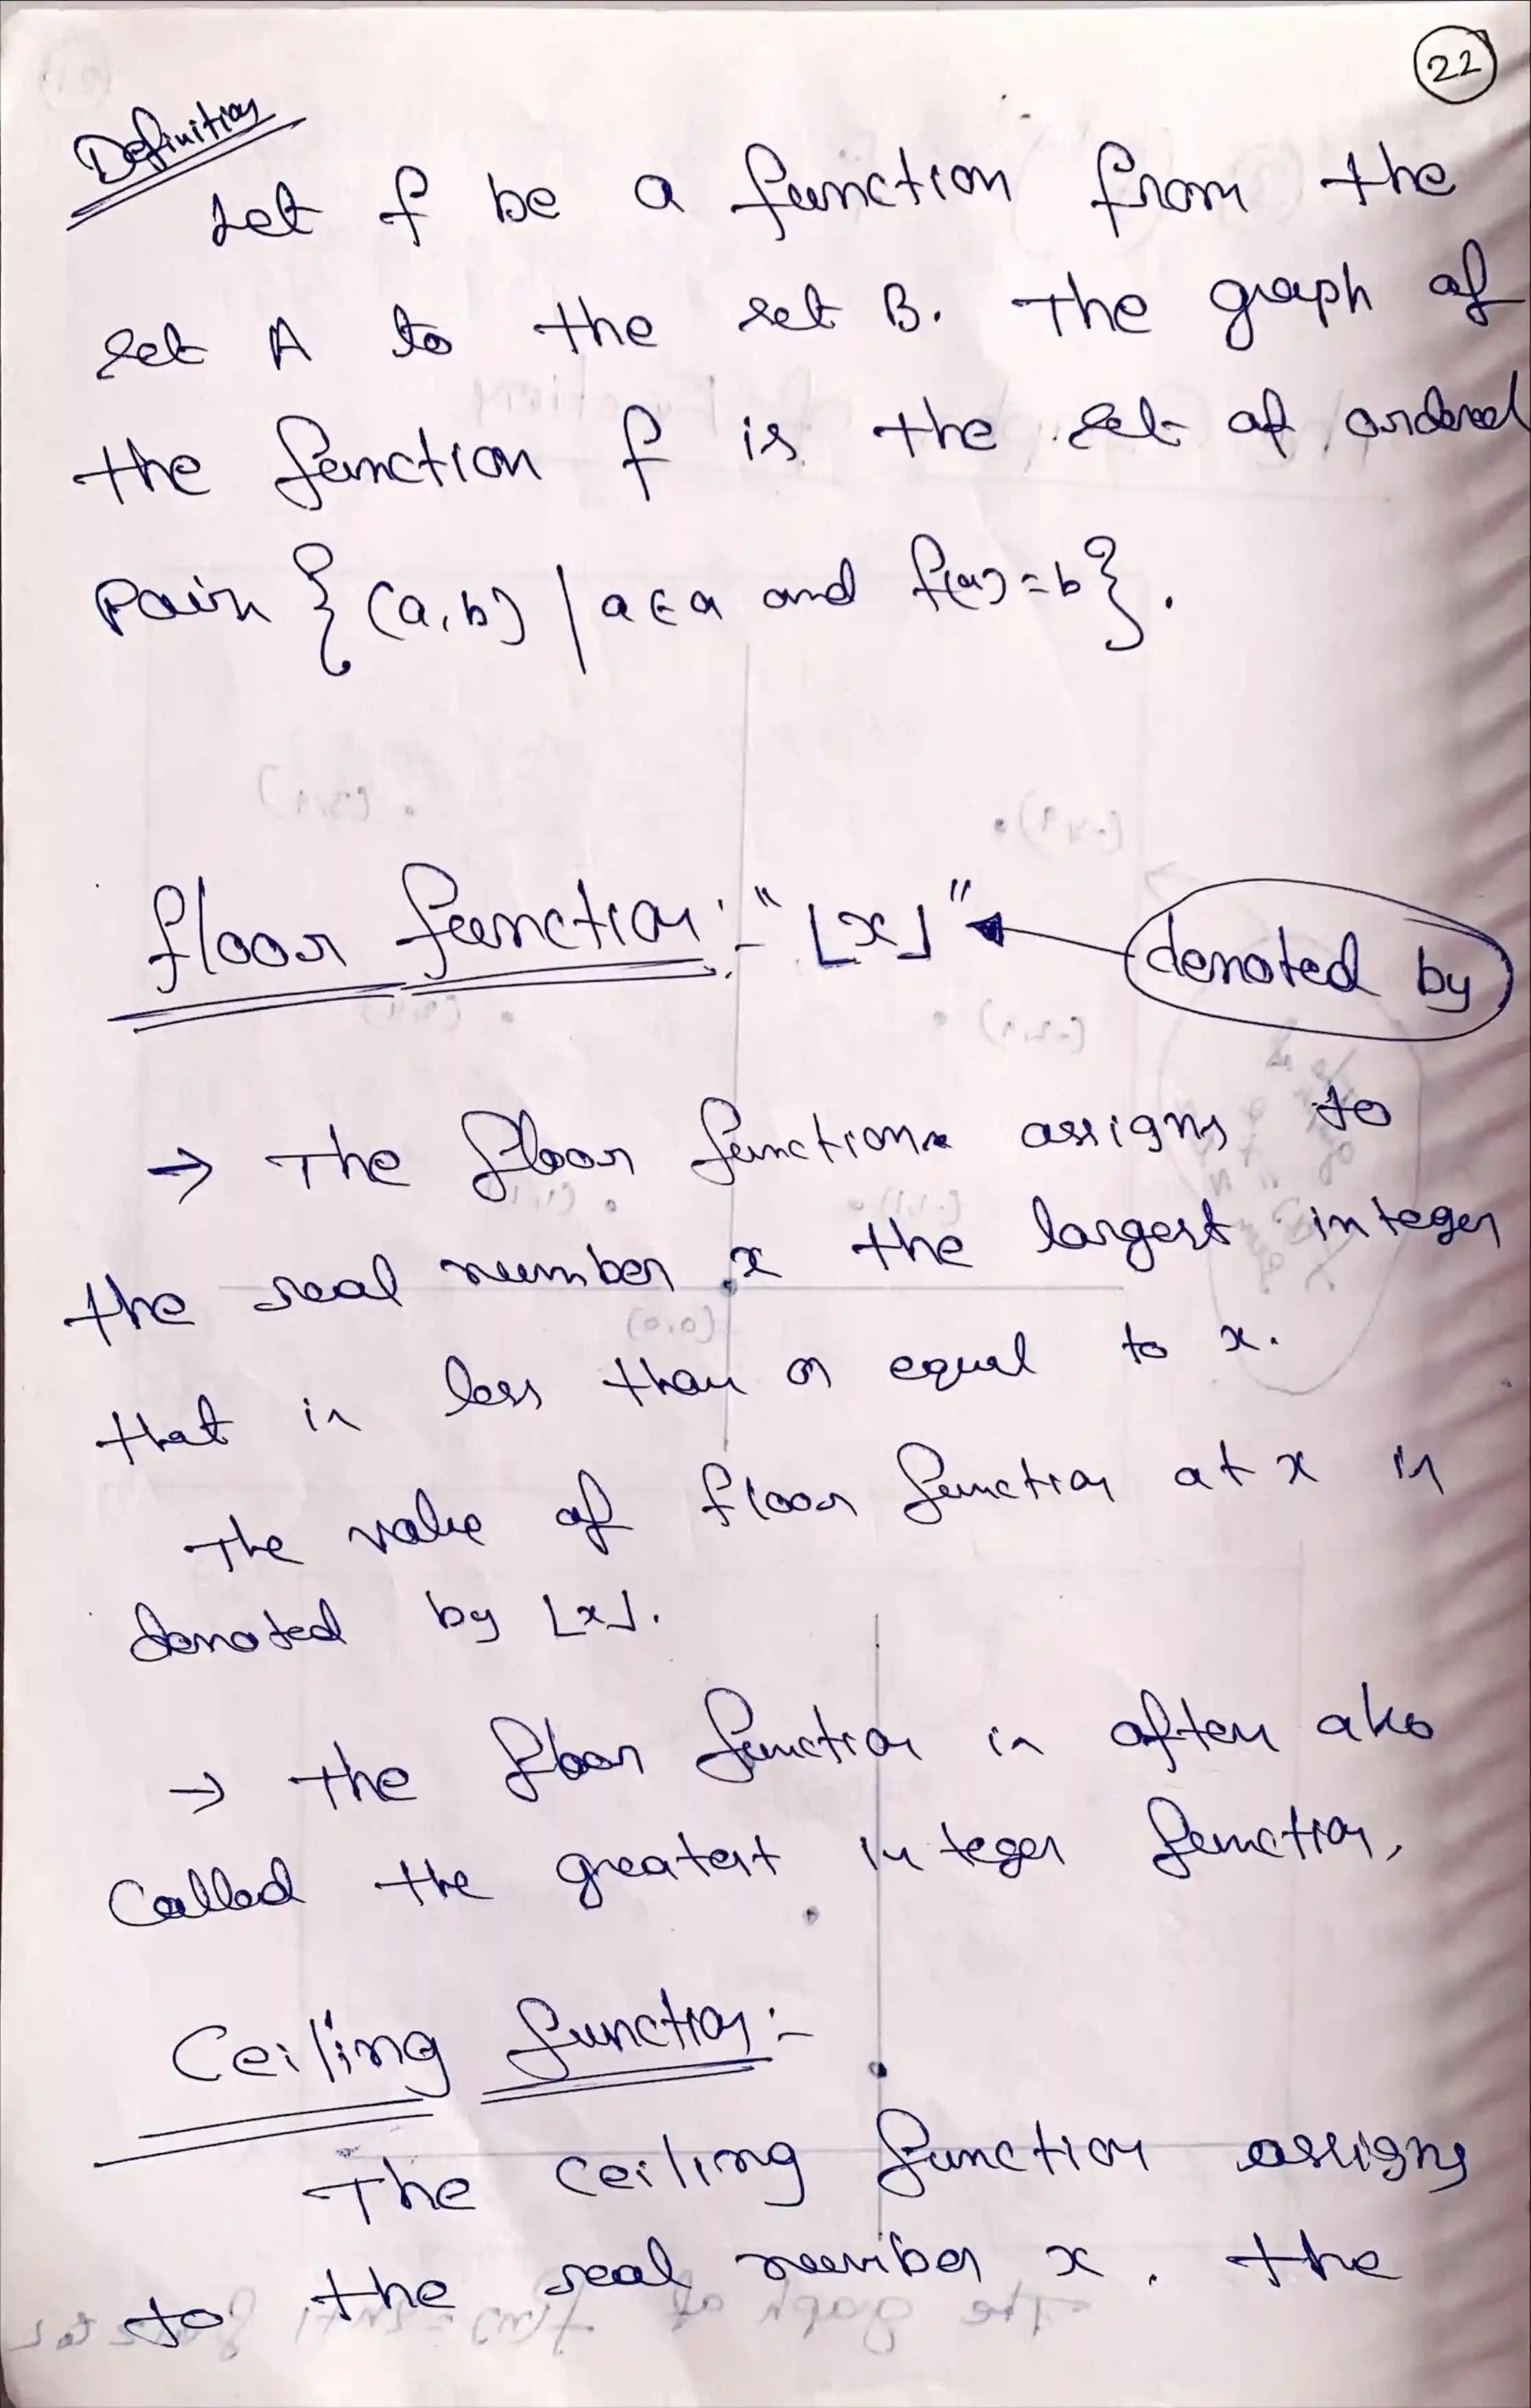 22
Definition
Let f be a function from the
set A to the set B. The graph of
the function f is the set of ordered
pair {(a,b) | a∈a and f(a)=b}.
floor function:- "⌊x⌋" denoted by
→ The floor function assigns to
the real number x the largest integer
that is less than or equal to x.
The value of floor function at x is
denoted by ⌊x⌋.
→ The floor function is often also
called the greatest integer function,
Ceiling function:-
The ceiling function assigns
to the real number x. the